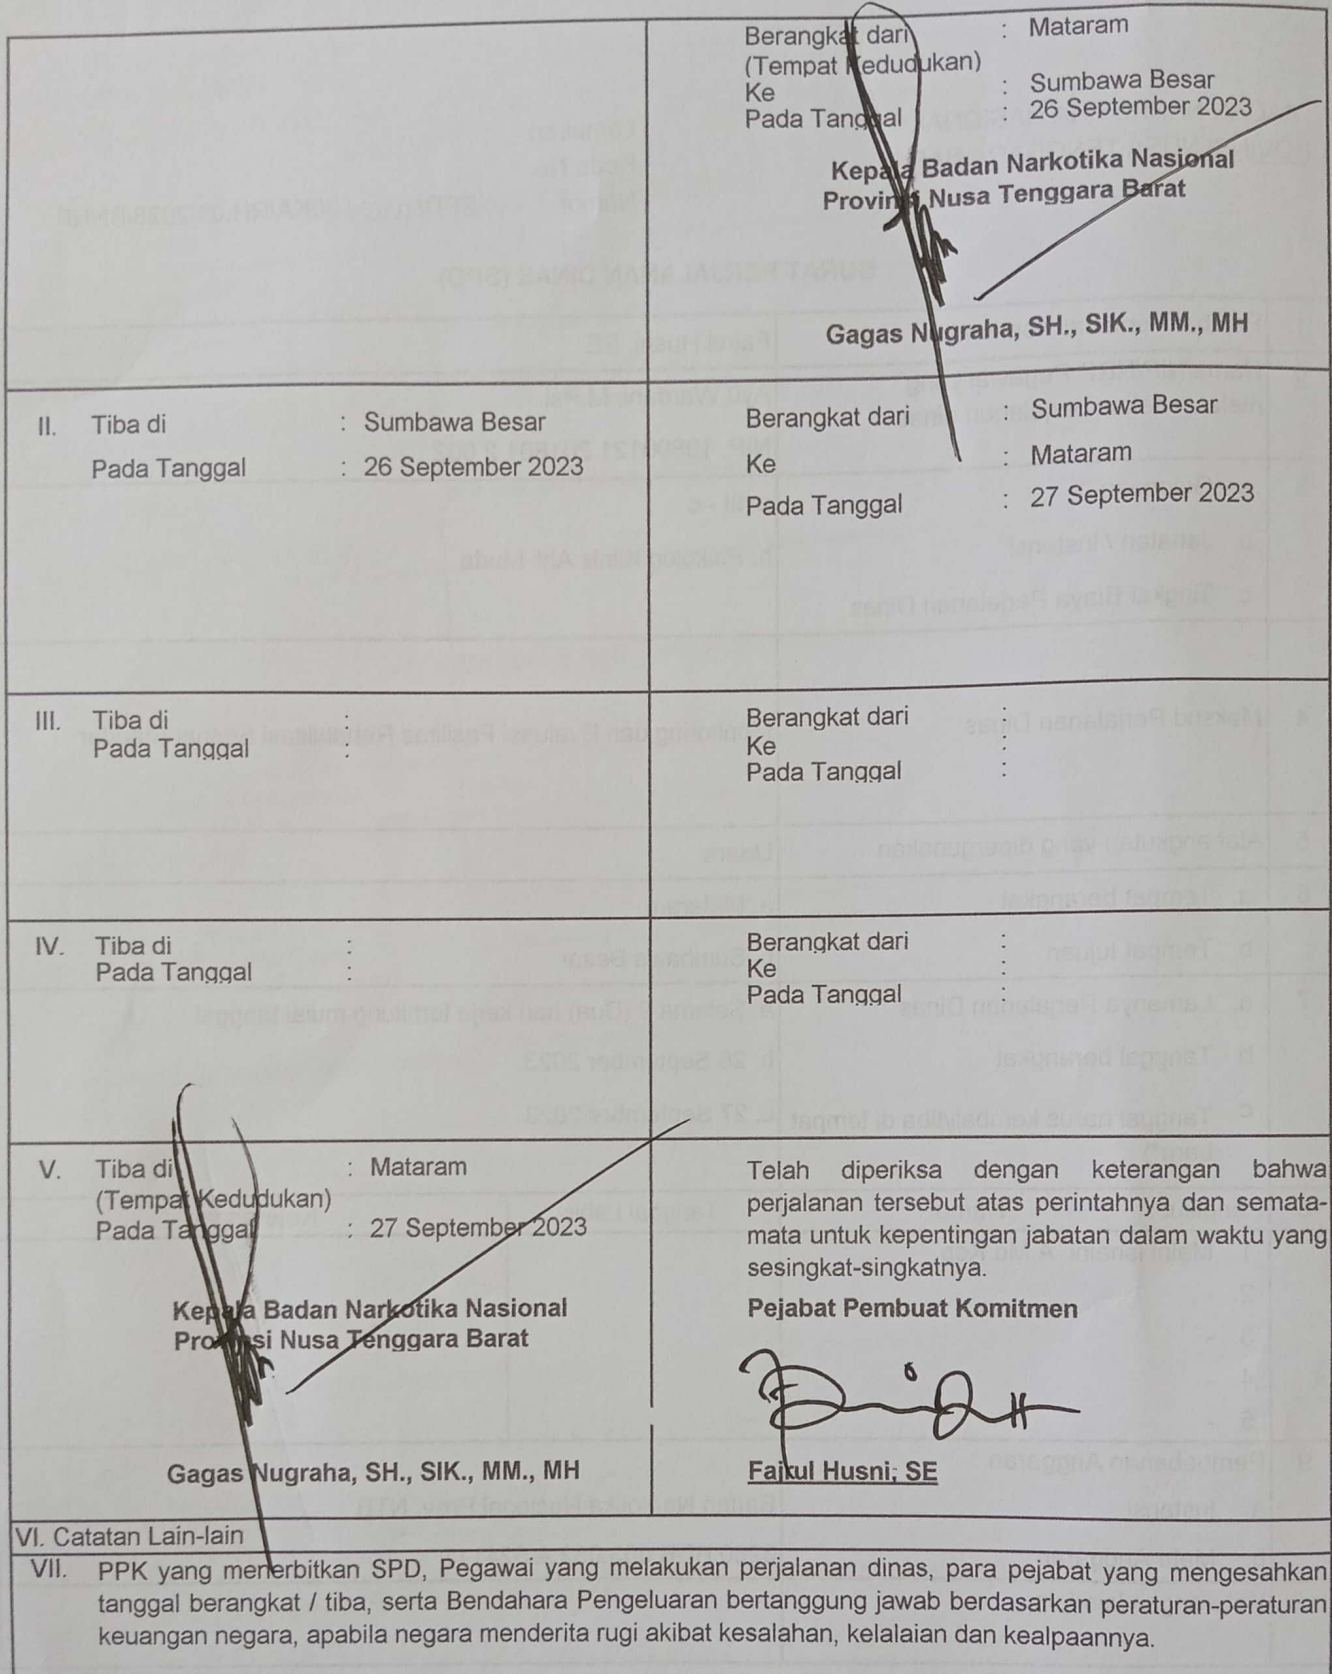 Berangkat dari : Mataram
(Tempat Kedudukan)
Ke : Sumbawa Besar
Pada Tanggal : 26 September 2023
Kepala Badan Narkotika Nasional
Provinsi Nusa Tenggara Barat
Gagas Nugraha, SH., SIK., MM., MH
II. Tiba di : Sumbawa Besar
Pada Tanggal : 26 September 2023
Berangkat dari : Sumbawa Besar
Ke : Mataram
Pada Tanggal : 27 September 2023
III. Tiba di :
Pada Tanggal :
Berangkat dari :
Ke :
Pada Tanggal :
IV. Tiba di :
Pada Tanggal :
Berangkat dari :
Ke :
Pada Tanggal :
V. Tiba di : Mataram
(Tempat Kedudukan)
Pada Tanggal : 27 September 2023
Kepala Badan Narkotika Nasional
Provinsi Nusa Tenggara Barat
Gagas Nugraha, SH., SIK., MM., MH
Telah diperiksa dengan keterangan bahwa
perjalanan tersebut atas perintahnya dan semata-
mata untuk kepentingan jabatan dalam waktu yang
sesingkat-singkatnya.
Pejabat Pembuat Komitmen
Husni, SE
VI. Catatan Lain-lain
VII. PPK yang menerbitkan SPD, Pegawai yang melakukan perjalanan dinas, para pejabat yang mengesahkan
tanggal berangkat / tiba, serta Bendahara Pengeluaran bertanggung jawab berdasarkan peraturan-peraturan
keuangan negara, apabila negara menderita rugi akibat kesalahan, kelalaian dan kealpaannya.